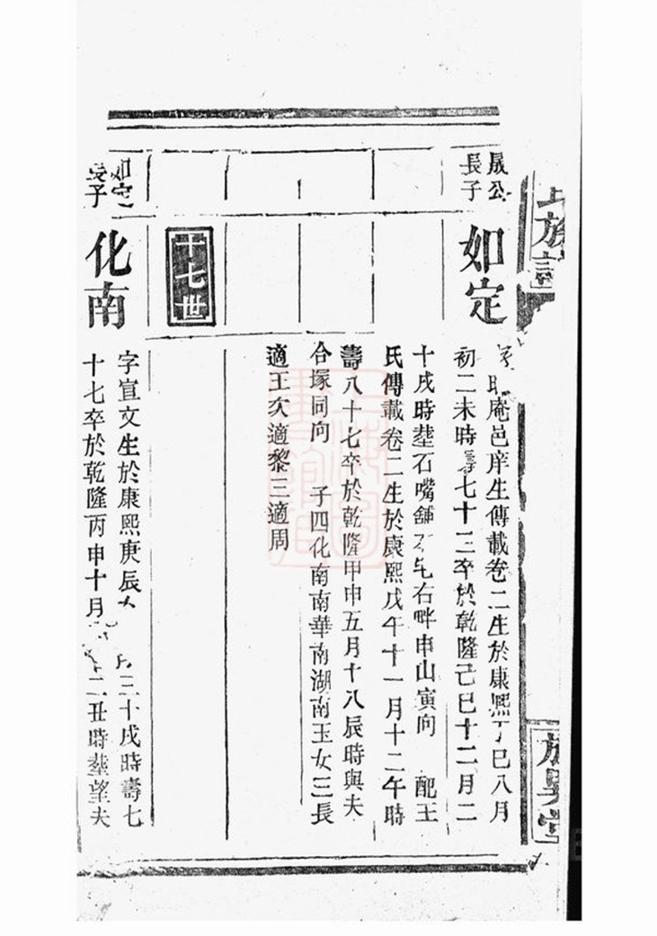 族譜
晟公長子
如定
庵邑庠生傳載卷二生於康熙丁巳八月
初二未時壽七十三卒於乾隆己巳十二月二
十戌時塟石嘴舖 屯右畔申山寅向 配王
氏傳載卷二生於康熙戊午十一月十二午時
壽八十七卒於乾隆甲申五月十八辰時與夫
合塚同向 子四化南南華南湖南玉女三長
適王次適黎三適周
十七世
如定長子
化南
字宣文生於康熙庚辰 月三十戌時壽七
十七卒於乾隆丙申十月 二丑時塟望夫